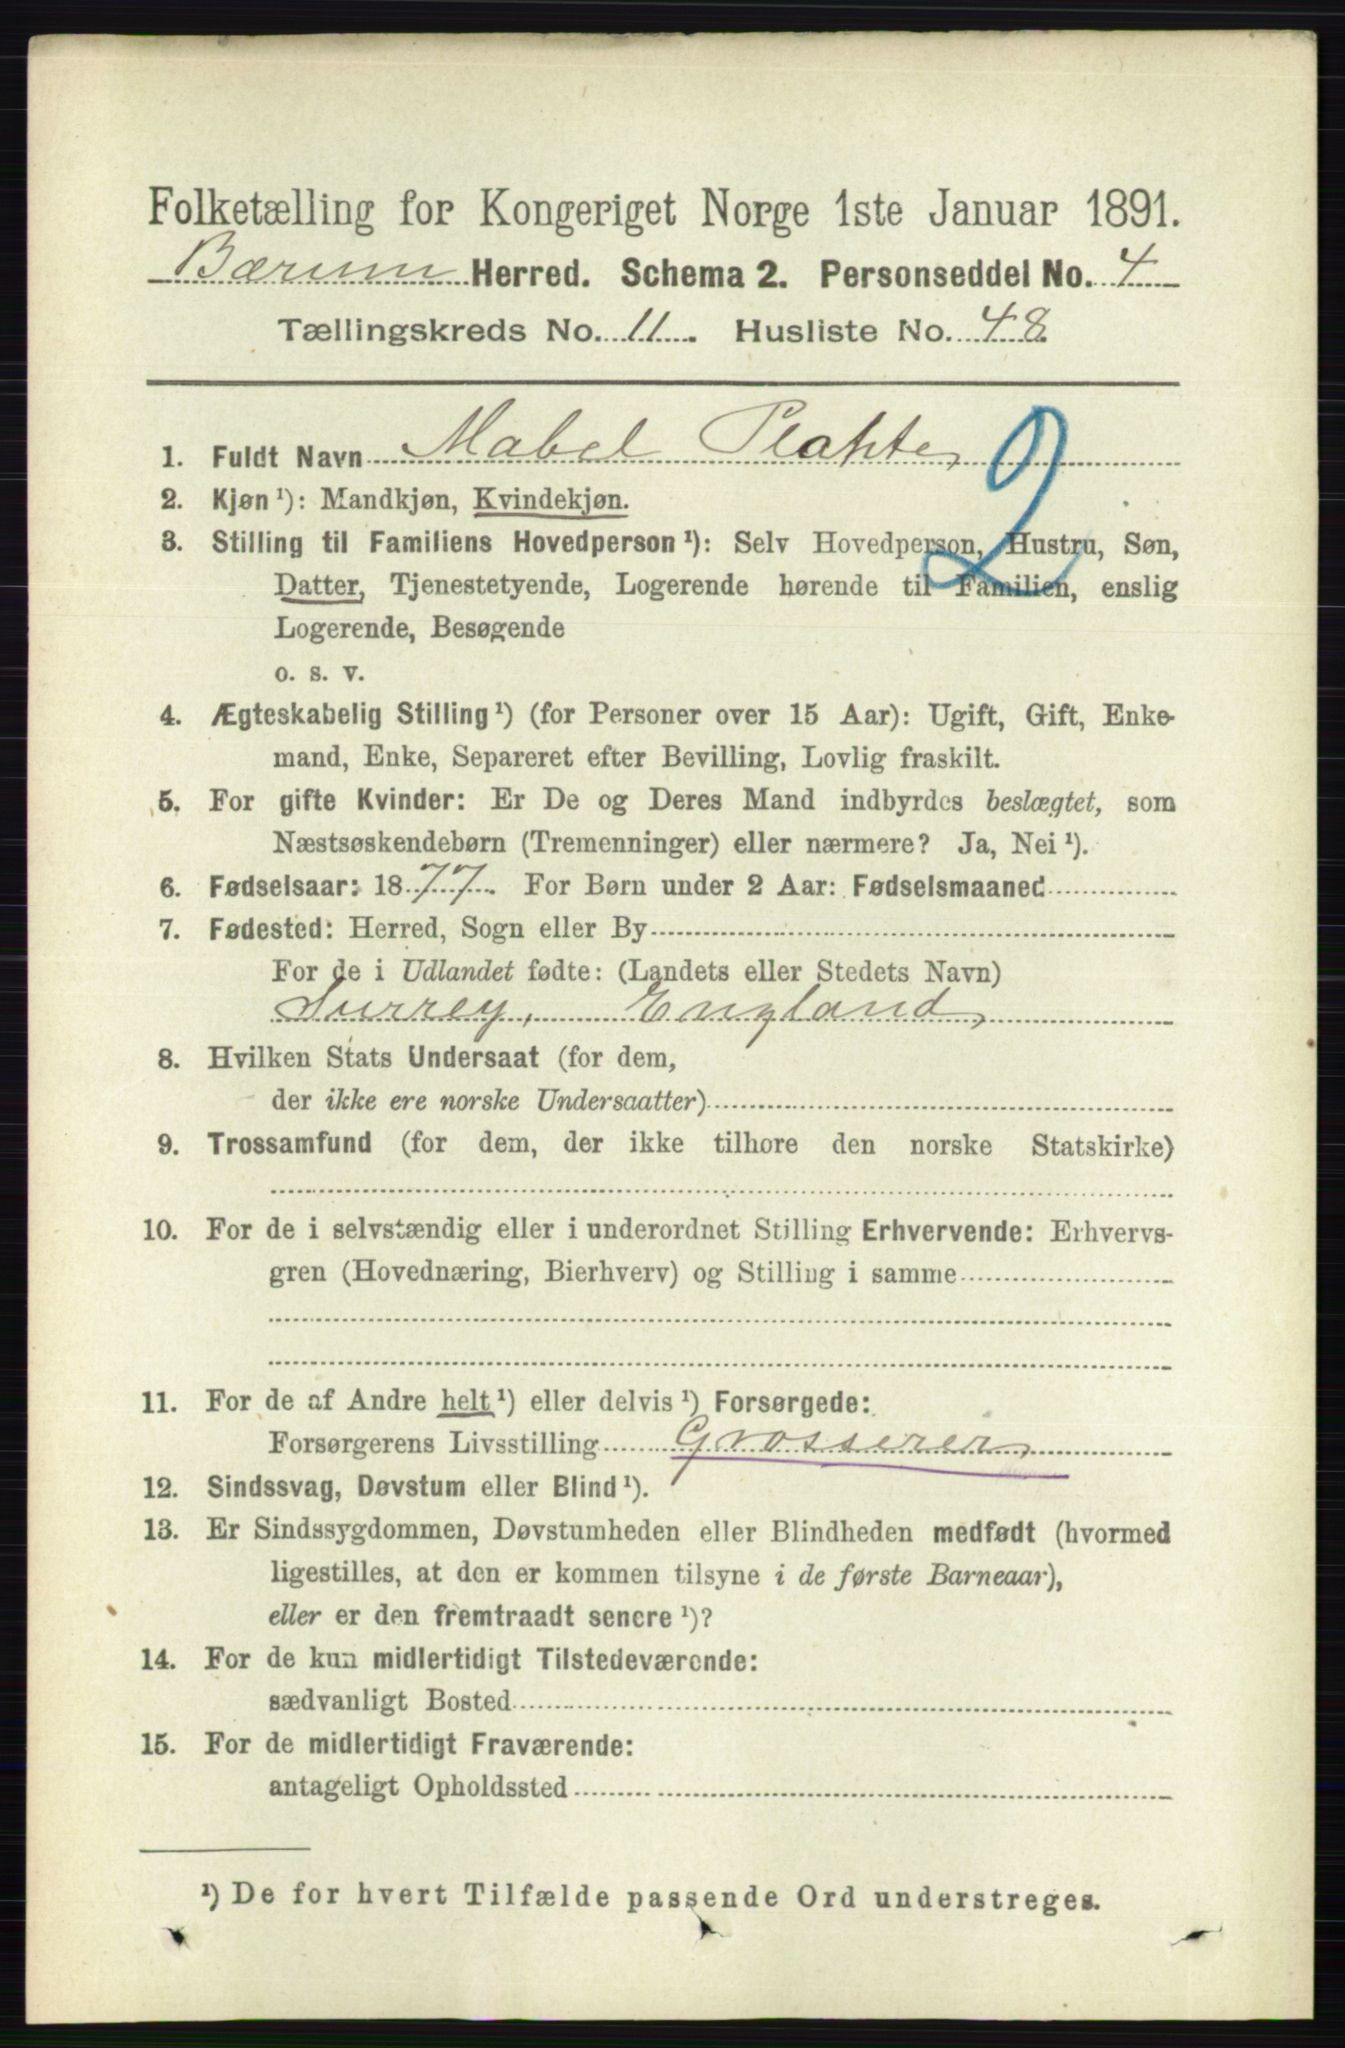 Folketælling for Kongeriget Norge 1ste Januar 1891.
Bærum Herred. Schema 2. Personseddel No. 4
Tællingskreds No. 11. Husliste No. 48.
1. Fuldt Navn Mabel Plahte,
2
2. Kjøn ¹): Mandkjøn, Kvindekjøn.
3. Stilling til Familiens Hovedperson ¹): Selv Hovedperson, Hustru, Søn,
Datter, Tjenestetyende, Logerende hørende til Familien, enslig
Logerende, Besøgende
o. s. v.
4. Ægteskabelig Stilling ¹) (for Personer over 15 Aar): Ugift, Gift, Enke-
mand, Enke, Separeret efter Bevilling, Lovlig fraskilt.
5. For gifte Kvinder: Er De og Deres Mand indbyrdes beslægtet, som
Næstsøskendebørn (Tremenninger) eller nærmere? Ja, Nei ¹).
6. Fødselsaar: 1877. For Børn under 2 Aar: Fødselsmaaned
7. Fødested: Herred, Sogn eller By
For de i Udlandet fødte: (Landets eller Stedets Navn)
Surrey, England,
8. Hvilken Stats Undersaat (for dem,
der ikke ere norske Undersaatter)
9. Trossamfund (for dem, der ikke tilhore den norske Statskirke)
10. For de i selvstændig eller i underordnet Stilling Erhvervende: Erhvervs-
gren (Hovednæring, Bierhverv) og Stilling i samme
11. For de af Andre helt ¹) eller delvis ¹) Forsørgede:
Forsørgerens Livsstilling Grosserer,
12. Sindssvag, Døvstum eller Blind ¹).
13. Er Sindssygdommen, Døvstumheden eller Blindheden medfødt (hvormed
ligestilles, at den er kommen tilsyne i de første Barneaar),
eller er den fremtraadt senere ¹)?
14. For de kun midlertidigt Tilstedeværende:
sædvanligt Bosted
15. For de midlertidigt Fraværende:
antageligt Opholdssted
¹) De for hvert Tilfælde passende Ord understreges.